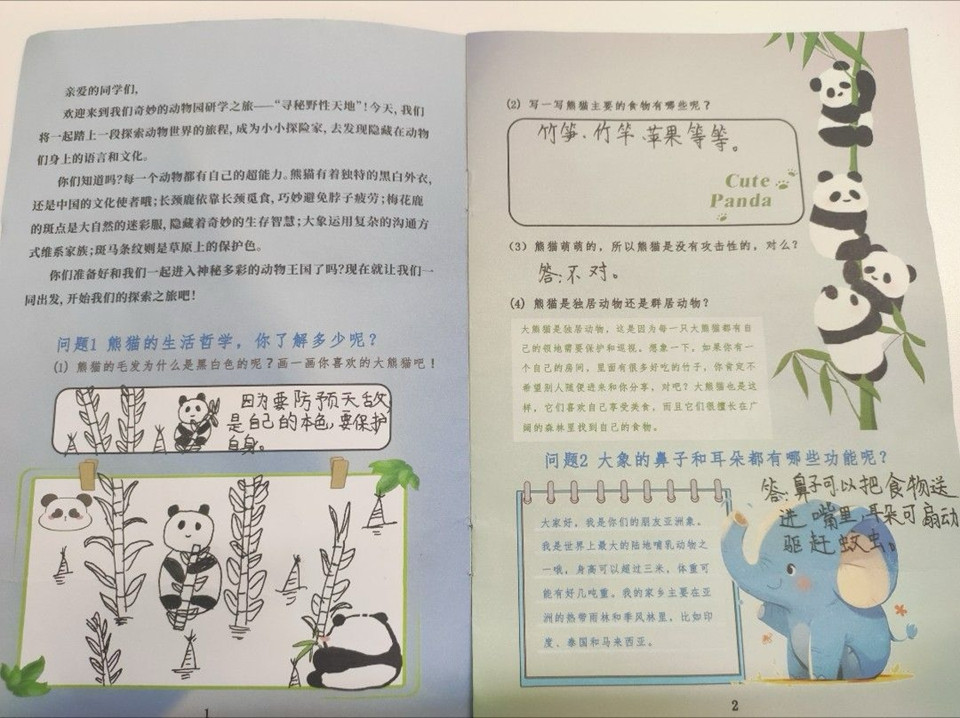 亲爱的同学们,
欢迎来到我们奇妙的动物园研学之旅——“寻秘野性天地”!今天,我们
将一起踏上一段探索动物世界的旅程,成为小小探险家,去发现隐藏在动物
们身上的语言和文化。
你们知道吗?每一个动物都有自己的超能力。熊猫有着独特的黑白外衣,
还是中国的文化使者哦;长颈鹿依靠长颈觅食,巧妙避免脖子疲劳;梅花鹿
的斑点是大自然的迷彩服,隐藏着奇妙的生存智慧;大象运用复杂的沟通方
式维系家族;斑马条纹则是草原上的保护色。
你们准备好和我们一起进入神秘多彩的动物王国了吗?现在就让我们一
同出发,开始我们的探索之旅吧!
问题1 熊猫的生活哲学，你了解多少呢？
(1) 熊猫的毛发为什么是黑白色的呢？画一画你喜欢的大熊猫吧！
因为要防预天敌
是自己的本色,要保护
自身。
1
(2) 写一写熊猫主要的食物有哪些呢？
竹笋、竹竿、苹果等等。
Cute
Panda
(3) 熊猫萌萌的，所以熊猫是没有攻击性的，对么？
答:不对。
(4) 熊猫是独居动物还是群居动物？
大熊猫是独居动物，这是因为每一只大熊猫都有自
己的领地需要保护和巡视。想象一下，如果你有一
个自己的房间，里面有很多好吃的竹子，你肯定不
希望别人随便进来和你分享，对吧？大熊猫也是这
样，它们喜欢自己享受美食，而且它们很擅长在广
阔的森林里找到自己的食物。
问题2 大象的鼻子和耳朵都有哪些功能呢？
答:鼻子可以把食物送
进嘴里,耳朵可扇动
驱赶蚊虫。
大家好，我是你们的朋友亚洲象。
我是世界上最大的陆地哺乳动物之
一哦，身高可以超过三米，体重可
能有好几吨重。我的家乡主要在亚
洲的热带雨林和季风林里，比如印
度、泰国和马来西亚。
2